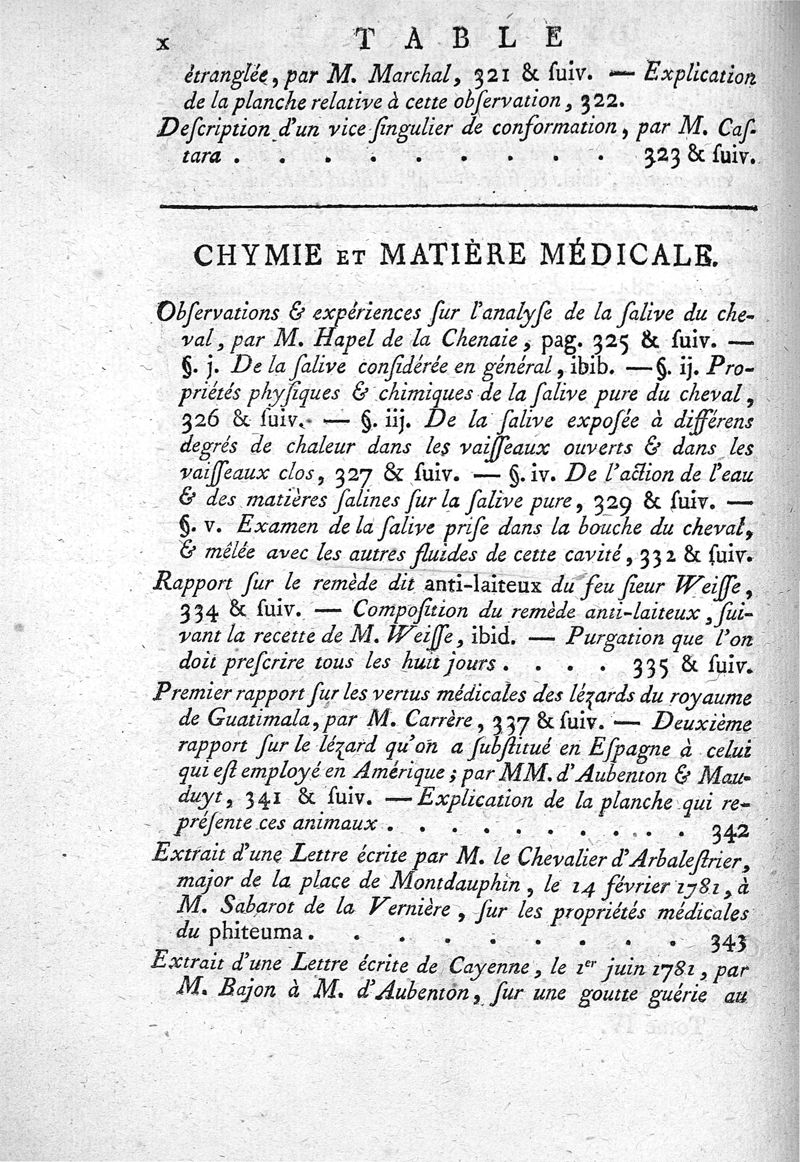 x T A B L E
étranglée, par M. Marchal, 321 & ſuiv. — Explication
de la planche relative à cette obſervation, 322.
Deſcription d'un vice ſingulier de conformation, par M. Caſ-
tara . . . . . . . . . . . 323 & ſuiv.
CHYMIE ET MATIÈRE MÉDICALE.
Obſervations & expériences ſur l'analyſe de la ſalive du che-
val, par M. Hapel de la Chenaie, pag. 325 & ſuiv. —
§. j. De la ſalive conſidérée en général, ibib. — §. ij. Pro-
priétés phyſiques & chimiques de la ſalive pure du cheval,
326 & ſuiv. — §. iij. De la ſalive expoſée à différens
degrés de chaleur dans les vaiſſeaux ouverts & dans les
vaiſſeaux clos, 327 & ſuiv. — §. iv. De l'action de l'eau
& des matières ſalines ſur la ſalive pure, 329 & ſuiv. —
§. v. Examen de la ſalive priſe dans la bouche du cheval,
& mêlée avec les autres fluides de cette cavité, 332 & ſuiv.
Rapport ſur le remède dit anti-laiteux du feu ſieur Weiſſe,
334 & ſuiv. — Compoſition du remède anti-laiteux, ſui-
vant la recette de M. Weiſſe, ibid. — Purgation que l'on
doit preſcrire tous les huit jours . . . . 335 & ſuiv.
Premier rapport ſur les vertus médicales des lézards du royaume
de Guatimala, par M. Carrère, 337 & ſuiv. — Deuxième
rapport ſur le lézard qu'on a ſubſtitué en Eſpagne à celui
qui eſt employé en Amérique ; par MM. d'Aubenton & Mau-
duyt, 341 & ſuiv. — Explication de la planche qui re-
préſente ces animaux . . . . . . . . . . 342
Extrait d'une Lettre écrite par M. le Chevalier d'Arbaleſtrier,
major de la place de Montdauphin, le 14 février 1781, à
M. Sabarot de la Vernière, ſur les propriétés médicales
du phiteuma . . . . . . . . . 343
Extrait d'une Lettre écrite de Cayenne, le 1er juin 1781, par
M. Bajon à M. d'Aubenton, ſur une goutte guérie au